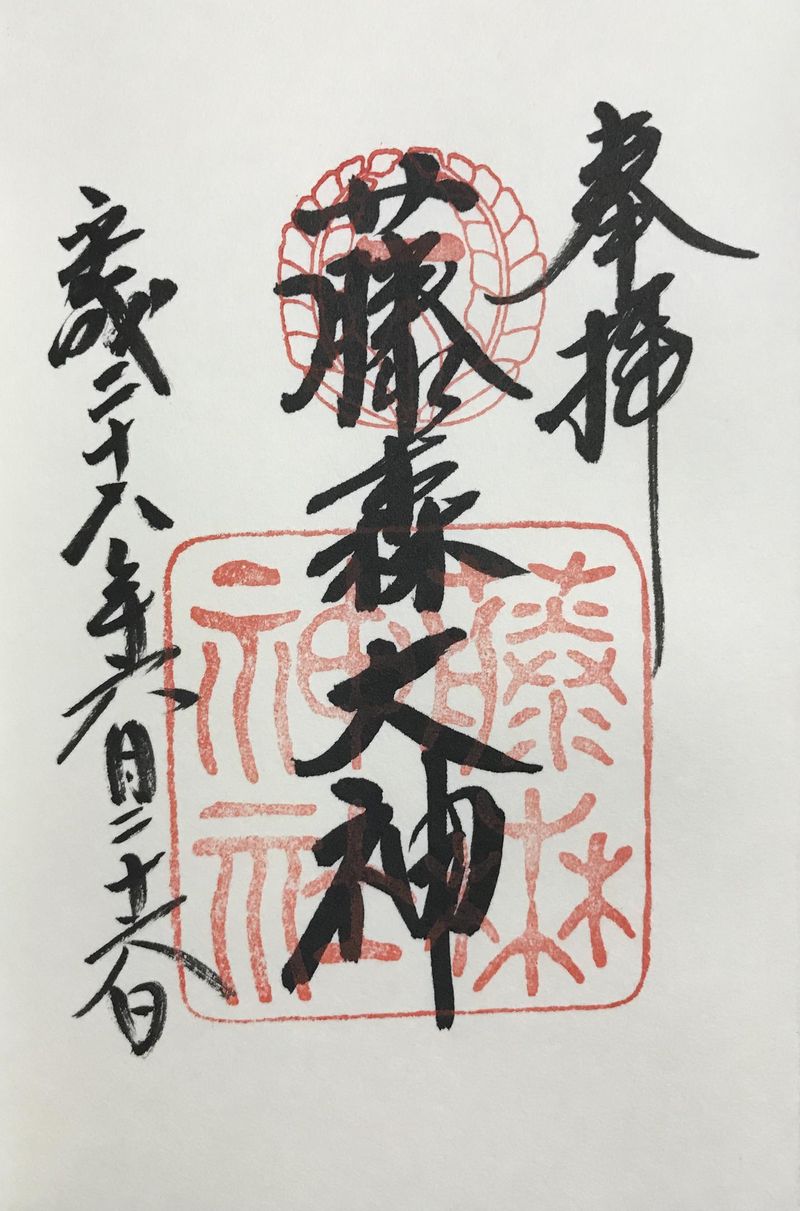 奉拝
藤森大神
平成二十八年六月二十六日
藤森
神社